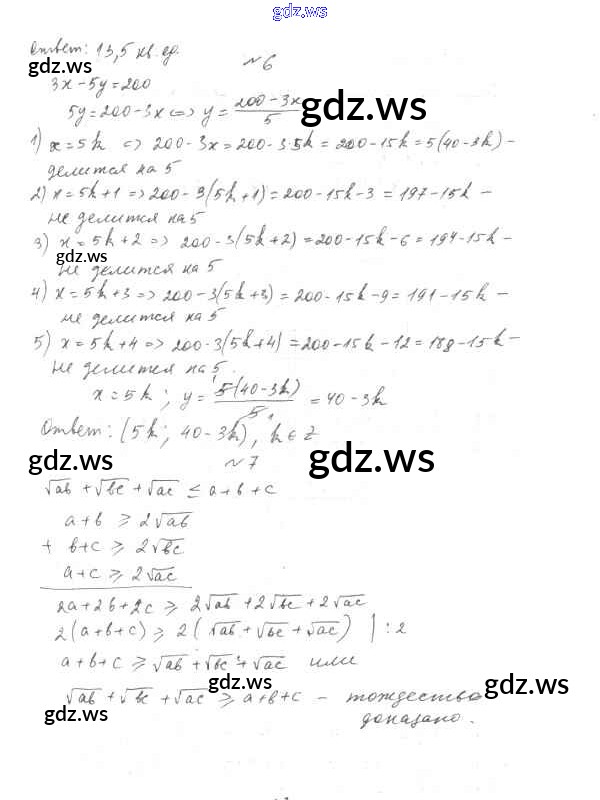 gdz.ws
Ответ: 13,5 кв. ед.
gdz.ws
№6
3x - 5y = 200
5y = 200 - 3x <=> y = (200 - 3x)/5
gdz.ws
1) x = 5k => 200 - 3x = 200 - 3·5k = 200 - 15k = 5(40 - 3k) -
делится на 5
2) x = 5k + 1 => 200 - 3(5k + 1) = 200 - 15k - 3 = 197 - 15k -
не делится на 5
gdz.ws
3) x = 5k + 2 => 200 - 3(5k + 2) = 200 - 15k - 6 = 194 - 15k -
не делится на 5
gdz.ws
4) x = 5k + 3 => 200 - 3(5k + 3) = 200 - 15k - 9 = 191 - 15k -
не делится на 5
gdz.ws
5) x = 5k + 4 => 200 - 3(5k + 4) = 200 - 15k - 12 = 188 - 15k -
не делится на 5.
x = 5k; y = 5(40 - 3k)/5 = 40 - 3k
Ответ: (5k; 40 - 3k), k ∈ Z
№7
gdz.ws
gdz.ws
√ab + √bc + √ac ≤ a + b + c
a + b ≥ 2√ab
+ b + c ≥ 2√bc
a + c ≥ 2√ac
2a + 2b + 2c ≥ 2√ab + 2√bc + 2√ac
2(a + b + c) ≥ 2(√ab + √bc + √ac) | : 2
a + b + c ≥ √ab + √bc + √ac или
gdz.ws
gdz.ws
√ab + √bc + √ac ≥ a + b + c - тождество
gdz.ws
доказано.